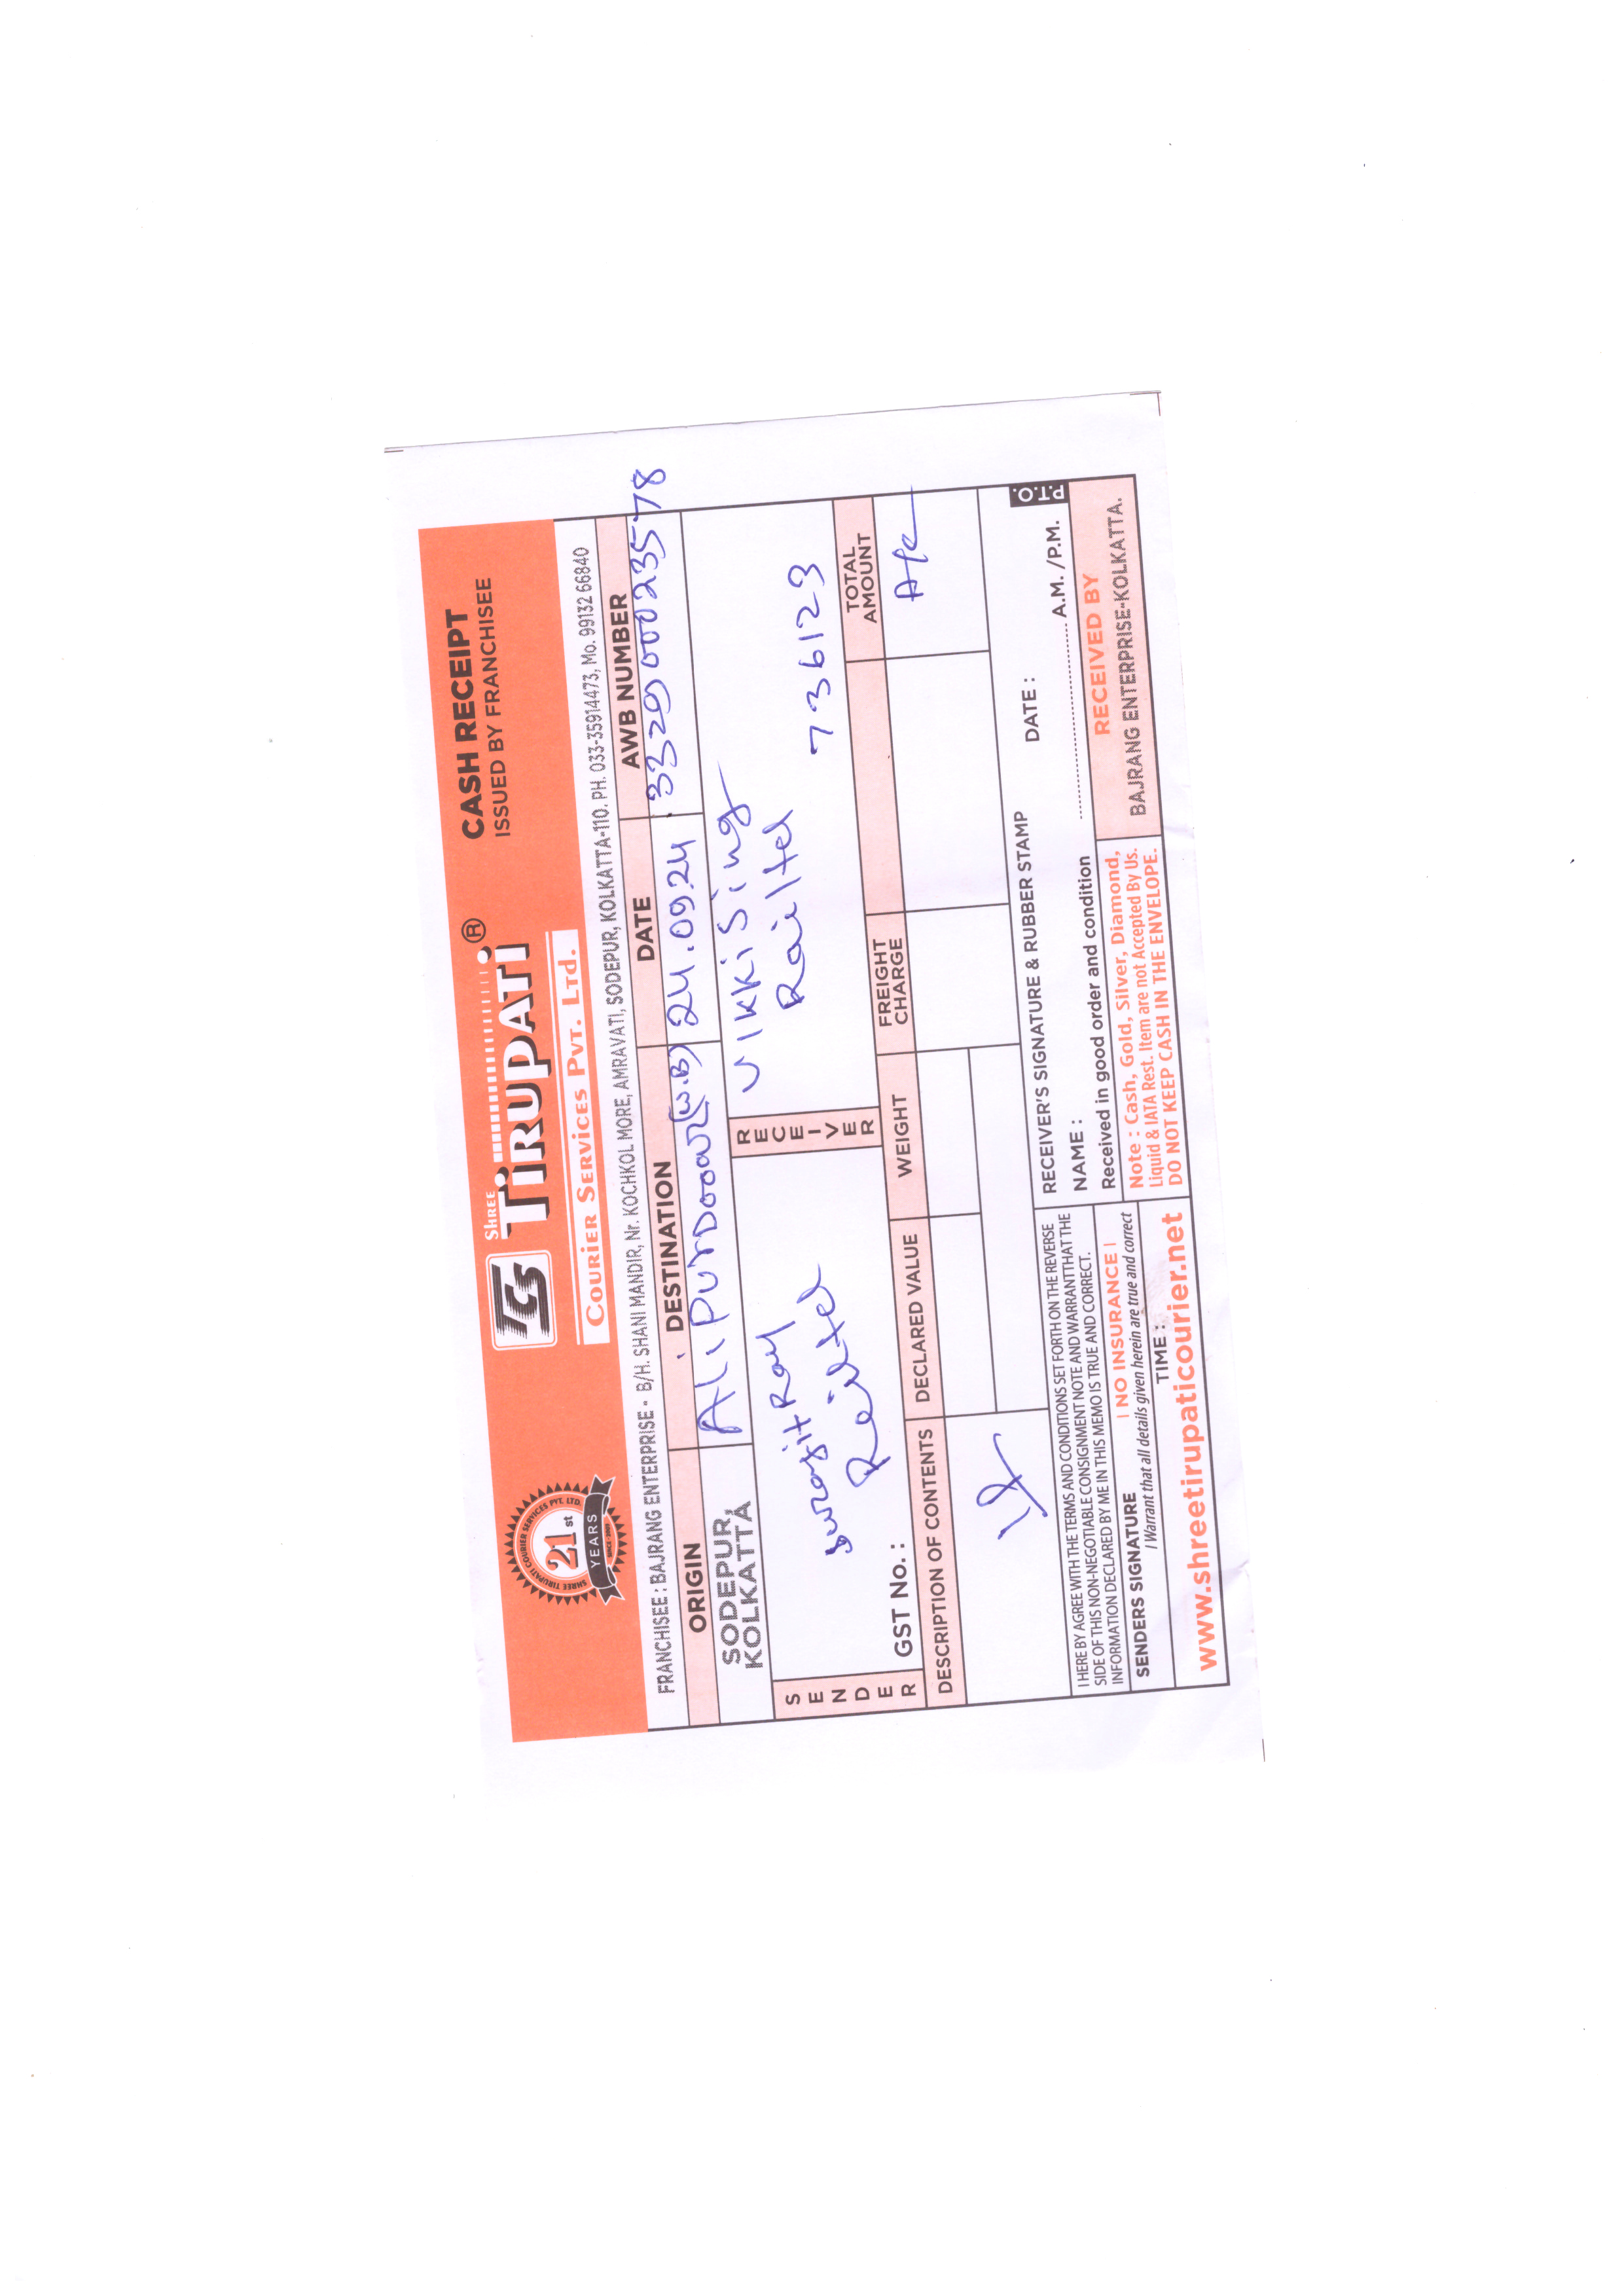 SHREE TIRUPATI COURIER SERVICES PVT. LTD.
21st
YEARS
SINCE - 2001
TCS
SHREE
TIRUPATI®
COURIER SERVICES PVT. LTD.
CASH RECEIPT
ISSUED BY FRANCHISEE
FRANCHISEE : BAJRANG ENTERPRISE - B/H. SHANI MANDIR, Nr. KOCHKOL MORE, AMRAVATI, SODEPUR, KOLKATTA-110. PH. 033-35914473, Mo. 99132 66840
ORIGIN DESTINATION DATE AWB NUMBER
SODEPUR, KOLKATTA AliPurDooar(W.B) 24.09.24 332900023578
SENDER
Surajit Ray
Railtel
GST No. :
RECEIVER
Vikki Sing
Railtel
736123
DESCRIPTION OF CONTENTS DECLARED VALUE WEIGHT FREIGHT CHARGE TOTAL AMOUNT
A/c
I HERE BY AGREE WITH THE TERMS AND CONDITIONS SET FORTH ON THE REVERSE
SIDE OF THIS NON-NEGOTIABLE CONSIGNMENT NOTE AND WARRANT THAT THE
INFORMATION DECLARED BY ME IN THIS MEMO IS TRUE AND CORRECT.
SENDERS SIGNATURE | NO INSURANCE |
I Warrant that all details given herein are true and correct
TIME :
www.shreetirupaticourier.net
RECEIVER'S SIGNATURE & RUBBER STAMP DATE : P.T.O.
NAME : A.M. /P.M.
Received in good order and condition
Note : Cash, Gold, Silver, Diamond,
Liquid & IATA Rest. Item are not Accepted By Us.
DO NOT KEEP CASH IN THE ENVELOPE.
RECEIVED BY
BAJRANG ENTERPRISE-KOLKATTA.